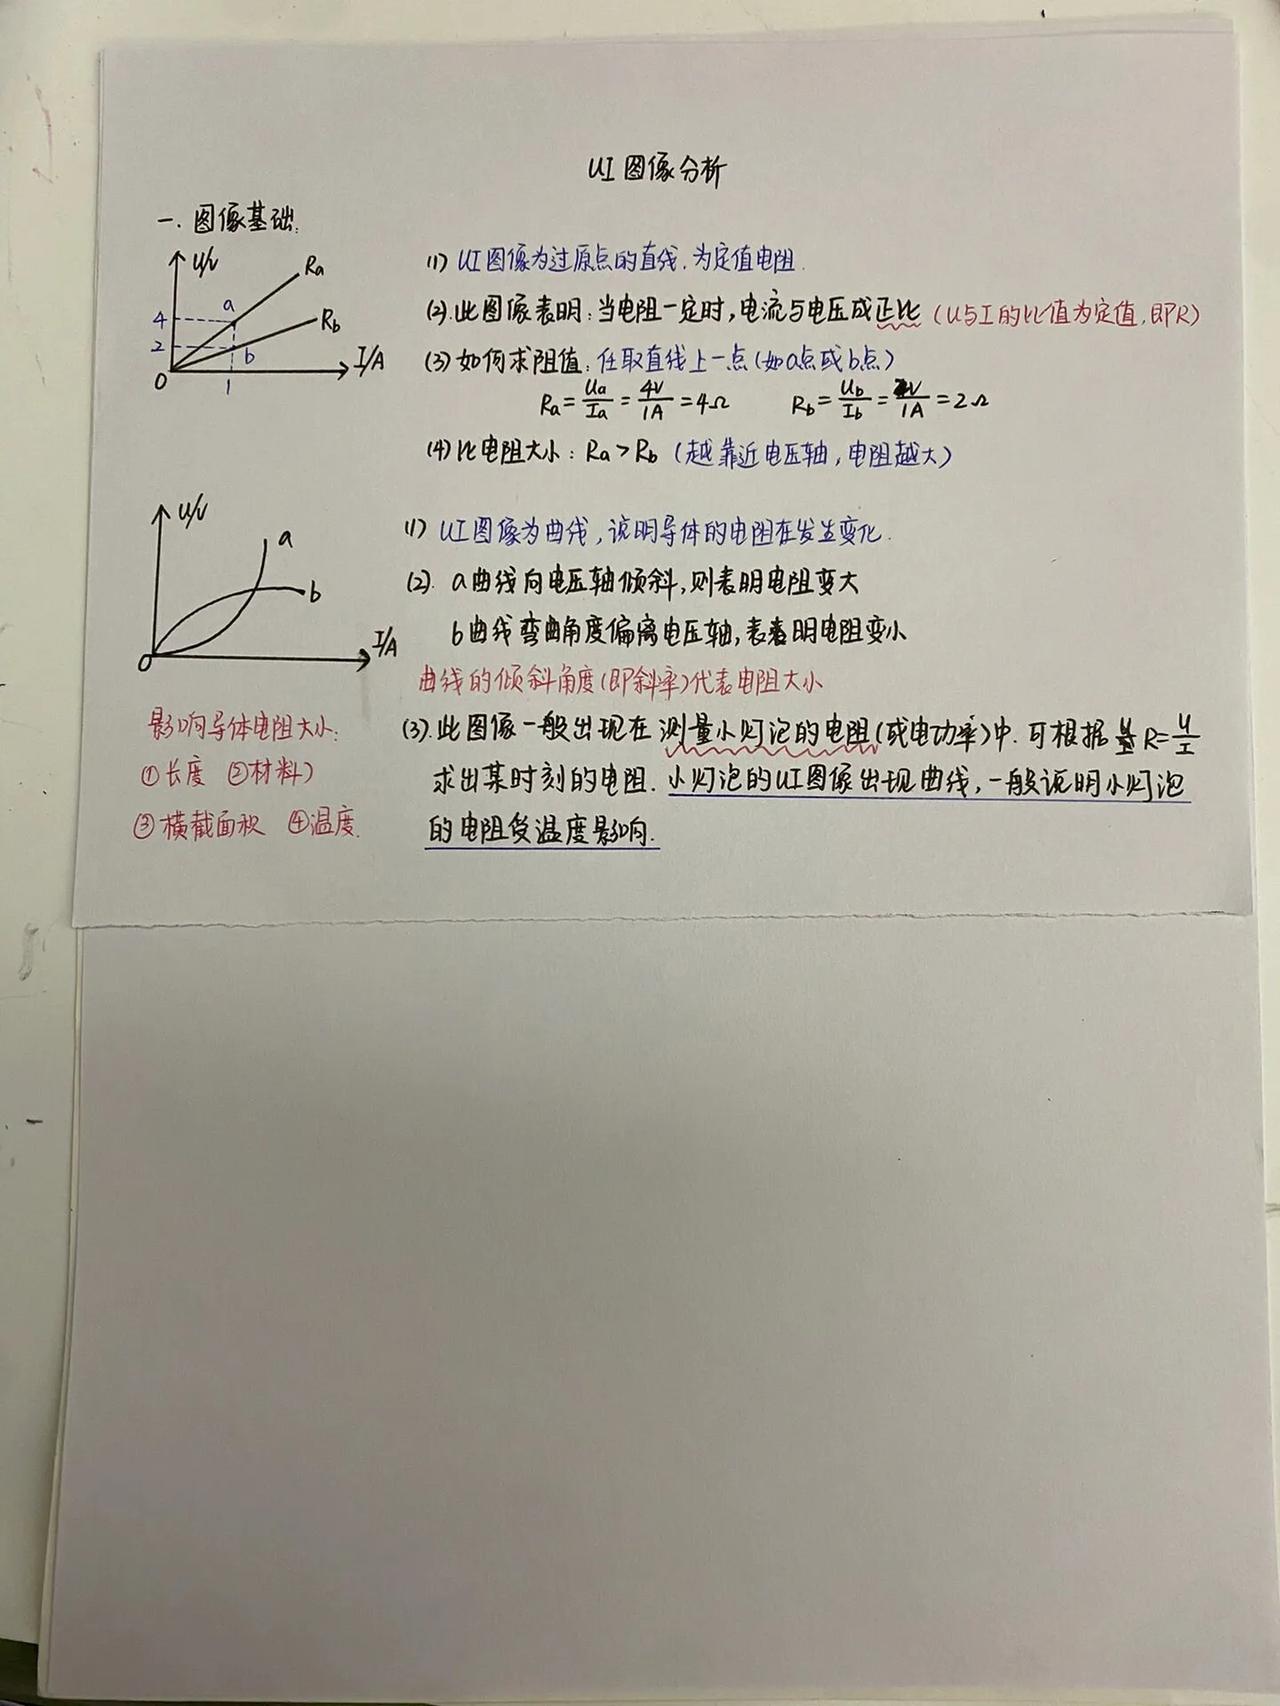 UI图像分析
一. 图像基础:
U/V
Ra
a
4
Rb
2
b
I/A
0
1
(1) UI图像为过原点的直线.为定值电阻.
(2).此图像表明:当电阻一定时,电流与电压成正比(U与I的比值为定值,即R)
(3)如何求阻值:任取直线上一点(如a点或b点)
Ra=Ua/Ia=4V/1A=4Ω Rb=Ub/Ib=2V/1A=2Ω
(4)比电阻大小: Ra>Rb (越靠近电压轴,电阻越大)
U/V
a
b
I/A
0
(1) UI图像为曲线,说明导体的电阻在发生变化.
(2). a曲线向电压轴倾斜,则表明电阻变大
b曲线弯曲角度偏离电压轴,表明电阻变小
曲线的倾斜角度(即斜率)代表电阻大小
影响导体电阻大小:
①长度 ②材料)
③横截面积 ④温度.
(3).此图像一般出现在测量小灯泡的电阻(或电功率)中.可根据 R=U/I
求出某时刻的电阻.小灯泡的UI图像出现曲线,一般说明小灯泡
的电阻受温度影响.